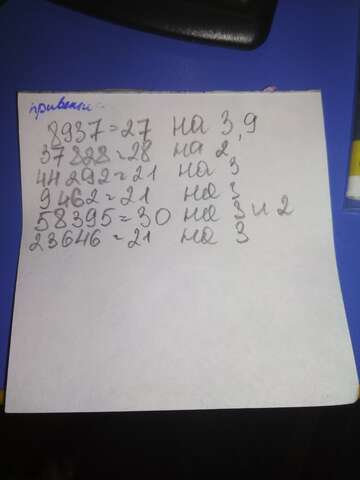 8937=27 на 3,9
37828=28 на 2
44292=21 на 3
9462=21 на 3
58395=30 на 3 и 2
23646=21 на 3